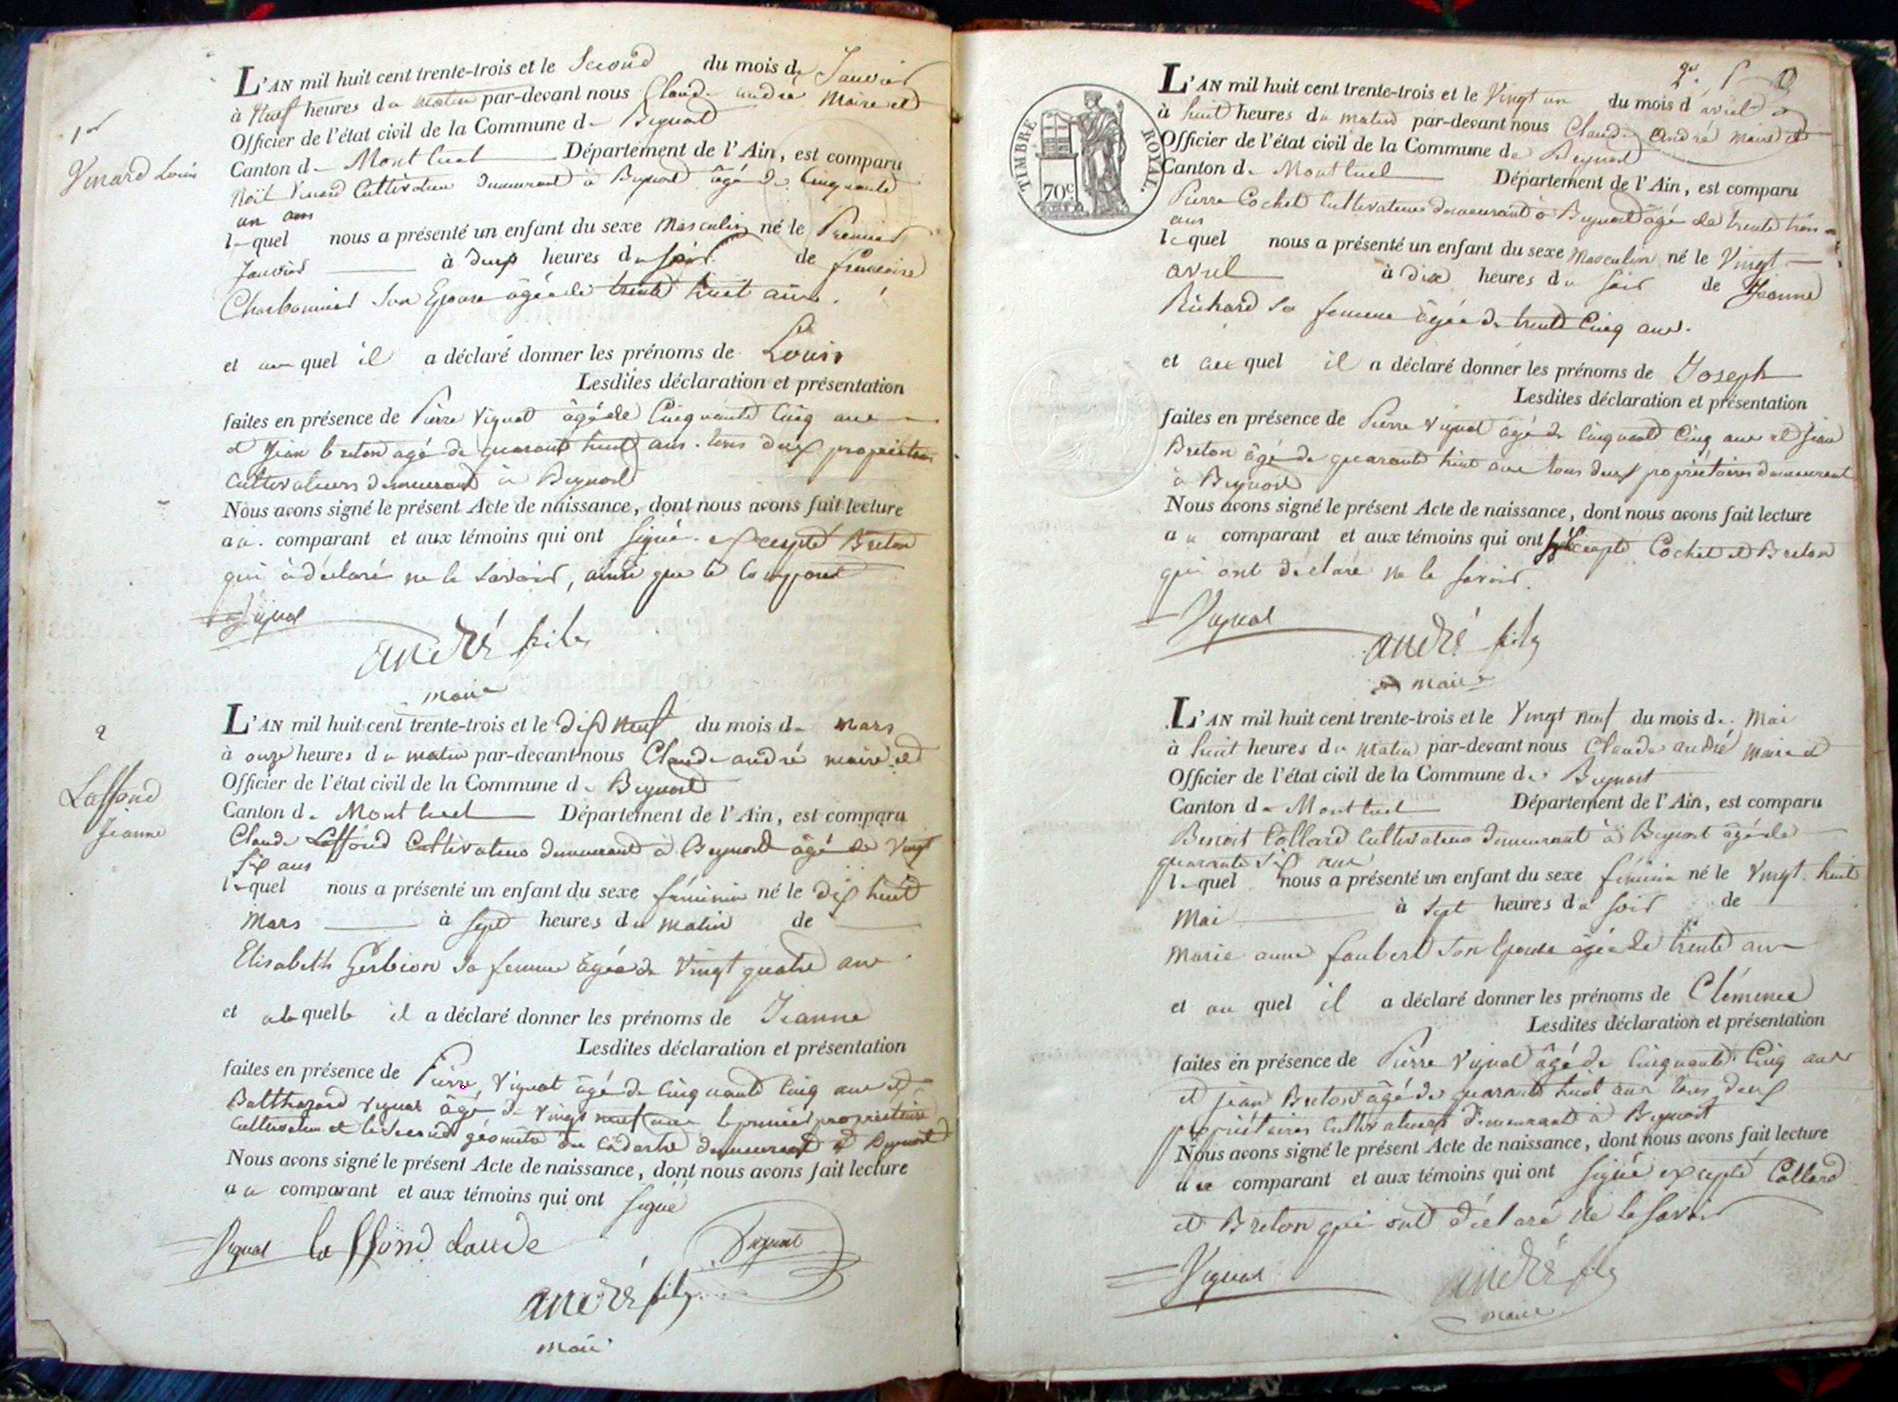 1er
Vinard Louis
L'AN mil huit cent trente-trois et le Second du mois de Janvier
à Neuf heures du matin par-devant nous Claude andré Maire et
Officier de l'état civil de la Commune de Beynost
Canton de Montluel Département de l'Ain, est comparu
Noël Vinard Cultivateur demeurant à Beynost âgé de Cinquante
un ans
lequel nous a présenté un enfant du sexe Masculin né le Premier
Janvier à deux heures du soir de francoise
Charbonnier Son Epouse âgée de trente huit ans.
et au quel il a déclaré donner les prénoms de Louis
Lesdites déclaration et présentation
faites en présence de Pierre Vignat âgé de Cinquante Cinq ans
et Jean breton agé de quarante huit ans. tous deux propriétaires
Cultivateurs demeurant à Beynost
Nous avons signé le présent Acte de naissance, dont nous avons fait lecture
au comparant et aux témoins qui ont signé. excepté Breton
qui à déclaré ne le savoir, ainsi que le Comparant
Vignat
andré fils
maire
2
Laffond
Jeanne
L'AN mil huit cent trente-trois et le dix neuf du mois de mars
à onze heures du matin par-devant nous Claude andré maire et
Officier de l'état civil de la Commune de Beynost
Canton de Montluel Département de l'Ain, est comparu
Claude Laffond Cultivateur demeurant à Beynost âgé de Vingt
six ans
lequel nous a présenté un enfant du sexe féminin né le dix huit
Mars à sept heures du matin de
Elisabeth Gerbion sa femme âgée de Vingt quatre ans
et a la quelle il a déclaré donner les prénoms de Jeanne
Lesdites déclaration et présentation
faites en présence de Pierre Vignat âgé de Cinquante Cinq ans et
Balthazard Vignat âgé de vingt neuf ans le premier propriétaire
Cultivateur et le second géomètre du Cadastre demeurant à Beynost
Nous avons signé le présent Acte de naissance, dont nous avons fait lecture
au comparant et aux témoins qui ont signé
Vignat laffond claude Vignat
andré fils
maire
TIMBRE ROYAL.
70c
L'AN mil huit cent trente-trois et le Vingt un du mois d'avril
à huit heures du matin par-devant nous Claude André maire et
Officier de l'état civil de la Commune de Beynost
Canton de Montluel Département de l'Ain, est comparu
Pierre Cochet Cultivateur demeurant à Beynost âgé de trente trois
ans
lequel nous a présenté un enfant du sexe Masculin né le Vingt
avril à dix heures du soir de Jeanne
Richard sa femme âgée de trente Cinq ans.
et au quel il a déclaré donner les prénoms de Joseph
Lesdites déclaration et présentation
faites en présence de Pierre Vignat âgé de Cinquante Cinq ans et Jean
Breton âgé de quarante huit ans tous deux propriétaires demeurant
à Beynost
Nous avons signé le présent Acte de naissance, dont nous avons fait lecture
au comparant et aux témoins qui ont signé excepté Cochet et Breton
qui ont déclaré ne le savoir.
Vignat
andré fils
maire
L'AN mil huit cent trente-trois et le Vingt neuf du mois de Mai
à huit heures du matin par-devant nous Claude andré maire et
Officier de l'état civil de la Commune de Beynost
Canton de Montluel Département de l'Ain, est comparu
Benoit Collard Cultivateur demeurant à Beynost âgé de
quarante six ans
lequel nous a présenté un enfant du sexe féminin né le Vingt huit
Mai à sept heures du soir de
Marie anne faubert son Epouse âgée de trente ans
et au quel il a déclaré donner les prénoms de Clémence
Lesdites déclaration et présentation
faites en présence de Pierre Vignat âgé de Cinquante Cinq ans
et jean Breton âgé de quarante huit ans tous deux
propriétaires Cultivateurs demeurant à Beynost
Nous avons signé le présent Acte de naissance, dont nous avons fait lecture
au comparant et aux témoins qui ont signé excepté Collard
et Breton qui ont déclaré ne le savoir
Vignat
andré fils
maire